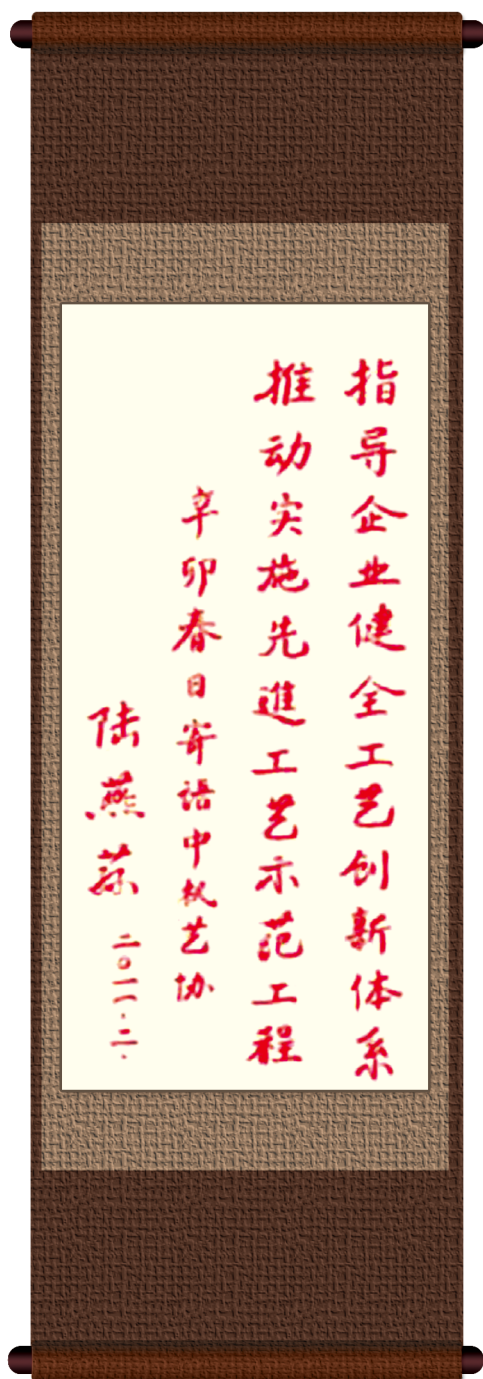 指导企业健全工艺创新体系
推动实施先進工艺示范工程
辛卯春日寄语中机艺协
陆燕荪
二〇一一.二.